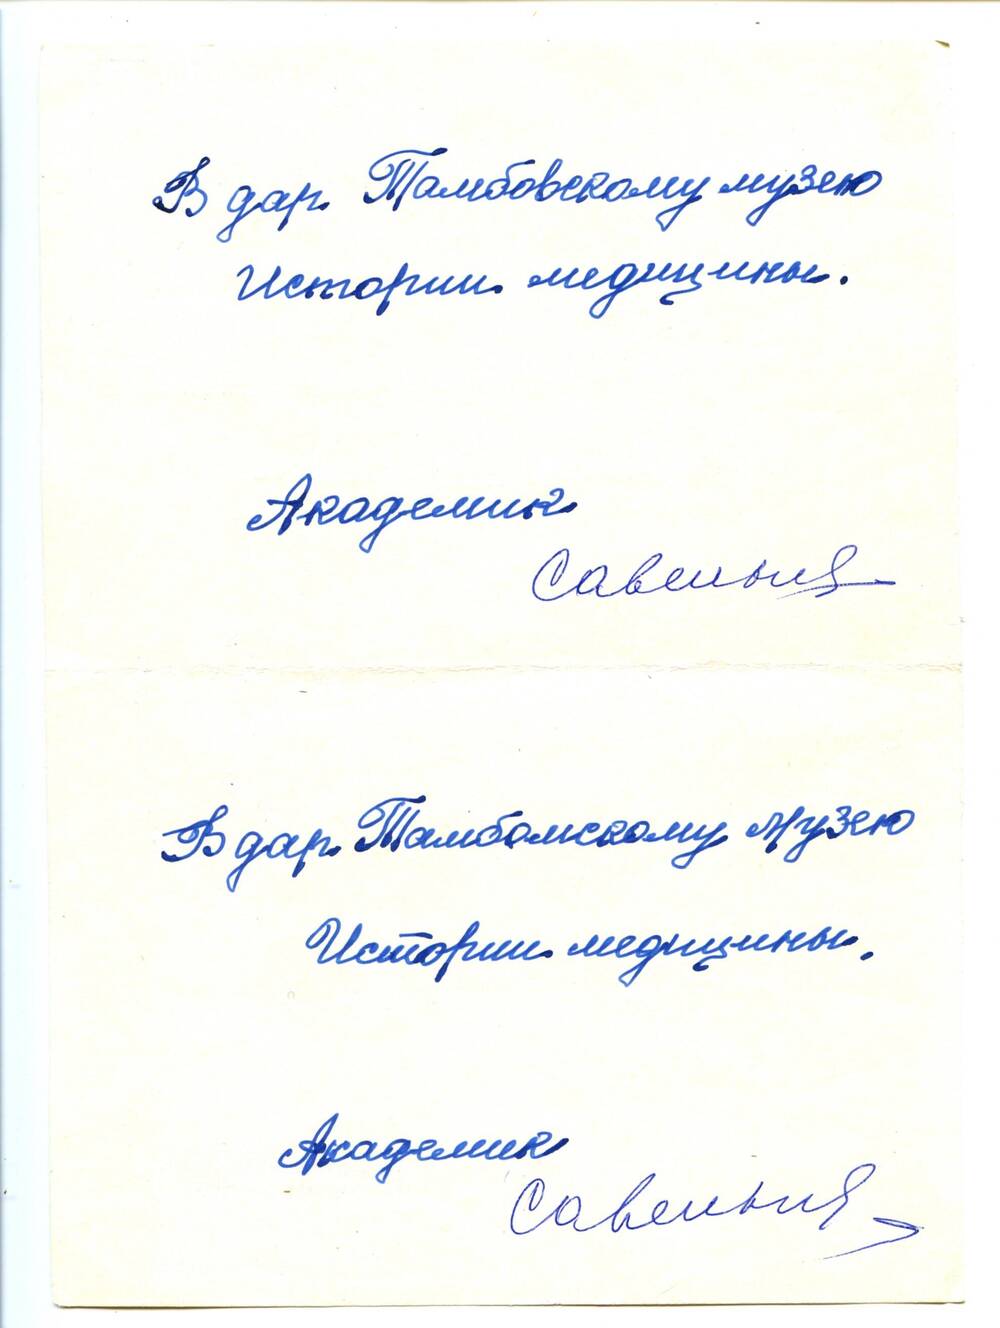 В дар Тамбовскому музею
Истории медицины.
Академик
Савельев
В дар Тамбомскому музею
Истории медицины.
Академик
Савельев